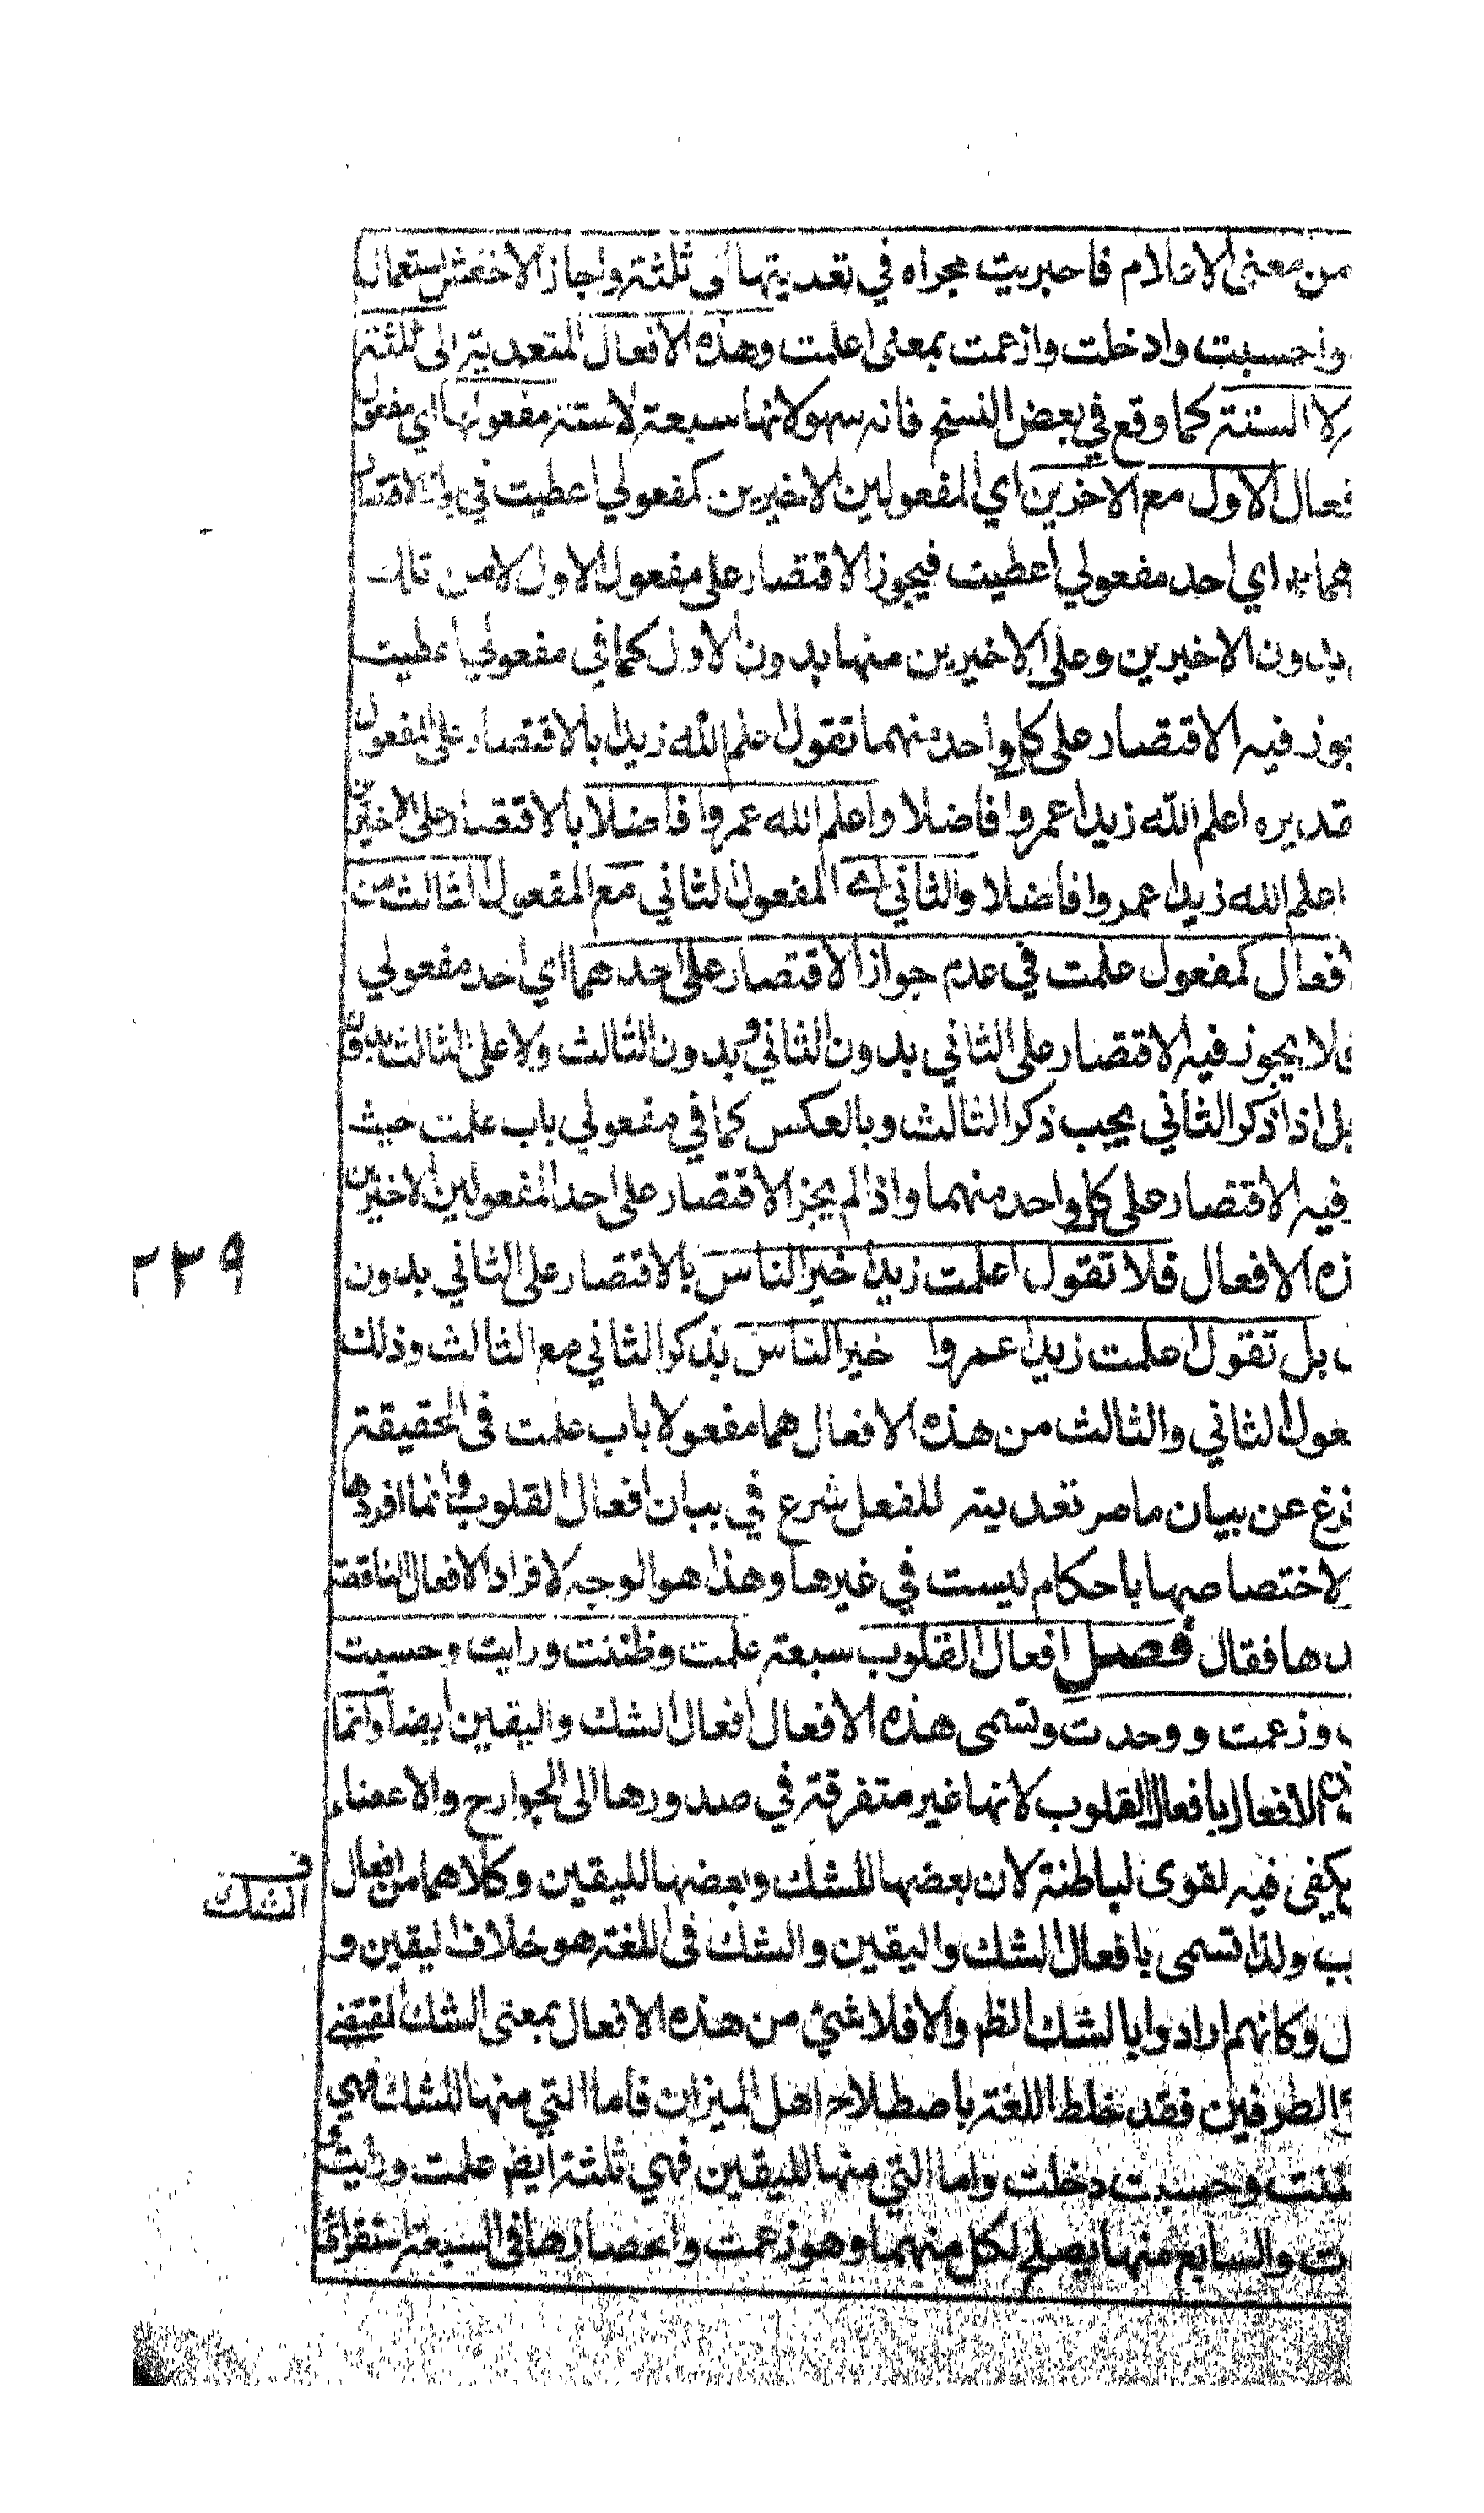 من معنى الاعلام فاجريت مجراه في تعديتها الى ثلثة واجاز الاخفش استعمال
واحسبت وادخلت وازعمت بمعنى اعلمت وهذه الافعال المتعدية الى ثلثة
لا الستة كما وقع في بعض النسخ فانه سهو لانها سبعة لا ستة مفعولها اي مفعول
فعال الاول مع الاخرين اي المفعولين الاخيرين كمفعولي اعطيت في جواز الاقتصار
اي احد مفعولي اعطيت فيجوز الاقتصار على مفعول الاول لا من تلك
بدون الاخيرين وعلى الاخيرين منها بدون الاول كما في مفعولي اعطيت
جوز فيه الاقتصار على كل واحد منهما تقول اعلم الله زيدا بالاقتصار على المفعول
قديره اعلم الله زيدا عمروا فاضلا واعلم الله عمروا فاضلا بالاقتصار على الاخيرين
اعلم الله زيدا عمروا فاضلا والثاني اي المفعول الثاني مع المفعول الثالث من
افعال كمفعول علمت في عدم جواز الاقتصار على احدهما اي احد مفعولي
فلا يجوز فيه الاقتصار على الثاني بدون الثاني و بدون الثالث ولا على الثالث بدون
بل اذا ذكر الثاني يجب ذكر الثالث وبالعكس كما في مفعولي باب علمت حيث
فيه الاقتصار على كل واحد منهما واذا لم يجز الاقتصار على احد المفعولين الاخيرين
ذه الافعال فلا تقول اعلمت زيدا خير الناس بالاقتصار على الثاني بدون
بل تقول اعلمت زيدا عمروا خير الناس بذكر الثاني مع الثالث وذلك
عول الثاني والثالث من هذه الافعال هما مفعولا باب علمت في الحقيقة
فرغ عن بيان ما صر تعديته للفعل شرع في بيان افعال القلوب وانما افردها
لاختصاصها باحكام ليست في غيرها وهذا هو الوجه لافراد الافعال الناقصة
دها فقال فصل افعال القلوب سبعة علمت وظننت ورايت وحسبت
وزعمت ووجدت وتسمى هذه الافعال افعال الشك واليقين ايضا وانما
ذه الافعال بافعال القلوب لانها غير متفرقة في صدورها الى الجوارح والاعضاء
يكفى فيه لقوى لباطنة لان بعضها للشك وبعضها لليقين وكلاهما من افعال
ب ولذا تسمى بافعال الشك واليقين والشك في اللغة هو خلاف اليقين و
ل وكانهم ارادوا بالشك الظم والا فلا شئ من هذه الافعال بمعنى الشك المقتضي
الطرفين فقد خلط اللغة باصطلاح اهل الميزان فاما التي منها للشك فهي
ظننت وحسبت وخلت واما التي منها لليقين فهي ثلثة ايضا علمت ورايت و
ت والسابع منها يصلح لكل منهما وهو زعمت وانحصارها في السبعة استقرائي
٢٢٩
ف
الشك